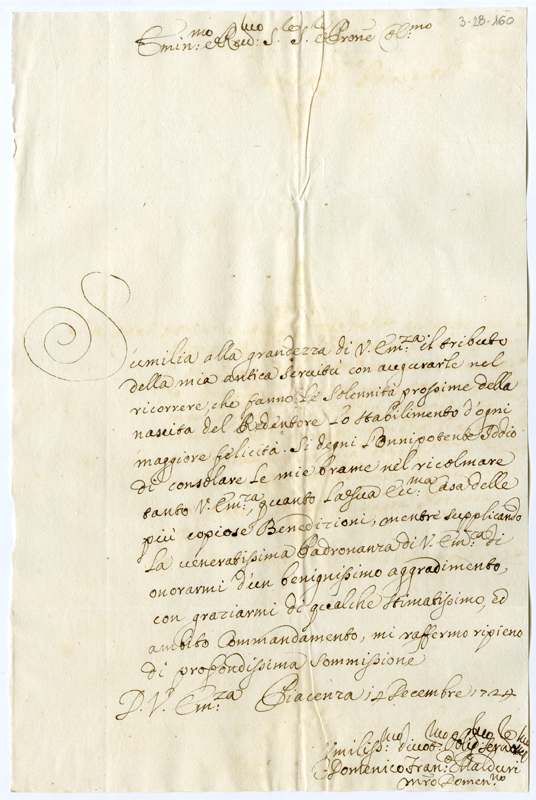 3-28-160
Emin:mo e Rev:mo Sig:re Sig:re e Prone Col:mo
S'umilia alla grandezza di V. Em:za il tributo
della mia antica servitù con augurarle nel
ricorrere, che fanno le solennità prossime della
nascita del Redentore lo stabilimento d'ogni
maggiore felicità. Si degni l'onnipotente Iddio
di consolare le mie brame nel ricolmare
tanto V. Em:za, quanto la sua Ecc:ma Casa delle
più copiose Benedizioni, mentre supplicando
la veneratissima Padronanza di V. Em:za di
onorarmi d'un benignissimo aggradimento,
con graziarmi di qualche stimatissimo, ed
ambito Commandamento, mi raffermo ripieno
di profondissima sommissione
D. V. Em:za Piacenza 14 Decembre 1724
Umiliss:mo Divot:mo Oblig:mo Serv:re
Domenico Fran:co
Domen:no